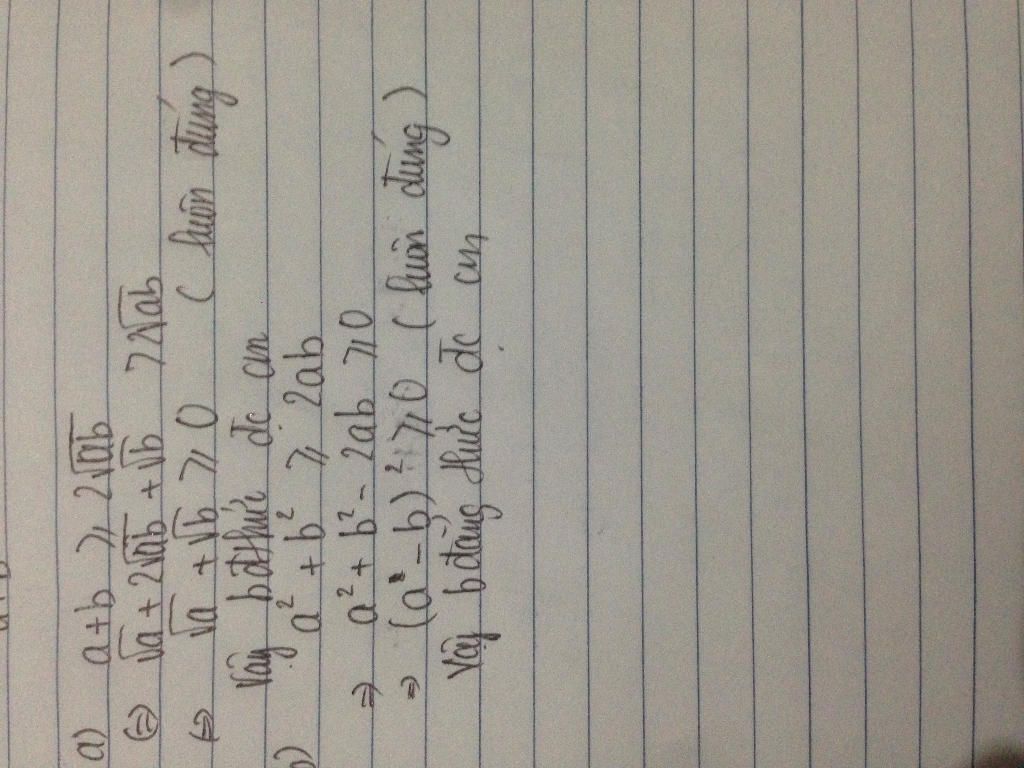 a) a+b ≥ 2√ab
(=) √a + 2√ab + √b ≥ 2√ab
(=) √a + √b ≥ 0 ( luôn đúng )
Vậy bđthức đc cm
b) a² + b² ≥ 2ab
=) a² + b² - 2ab ≥ 0
=) (a - b)² ≥ 0 ( luôn đúng )
Vậy bđẳng thức đc cm